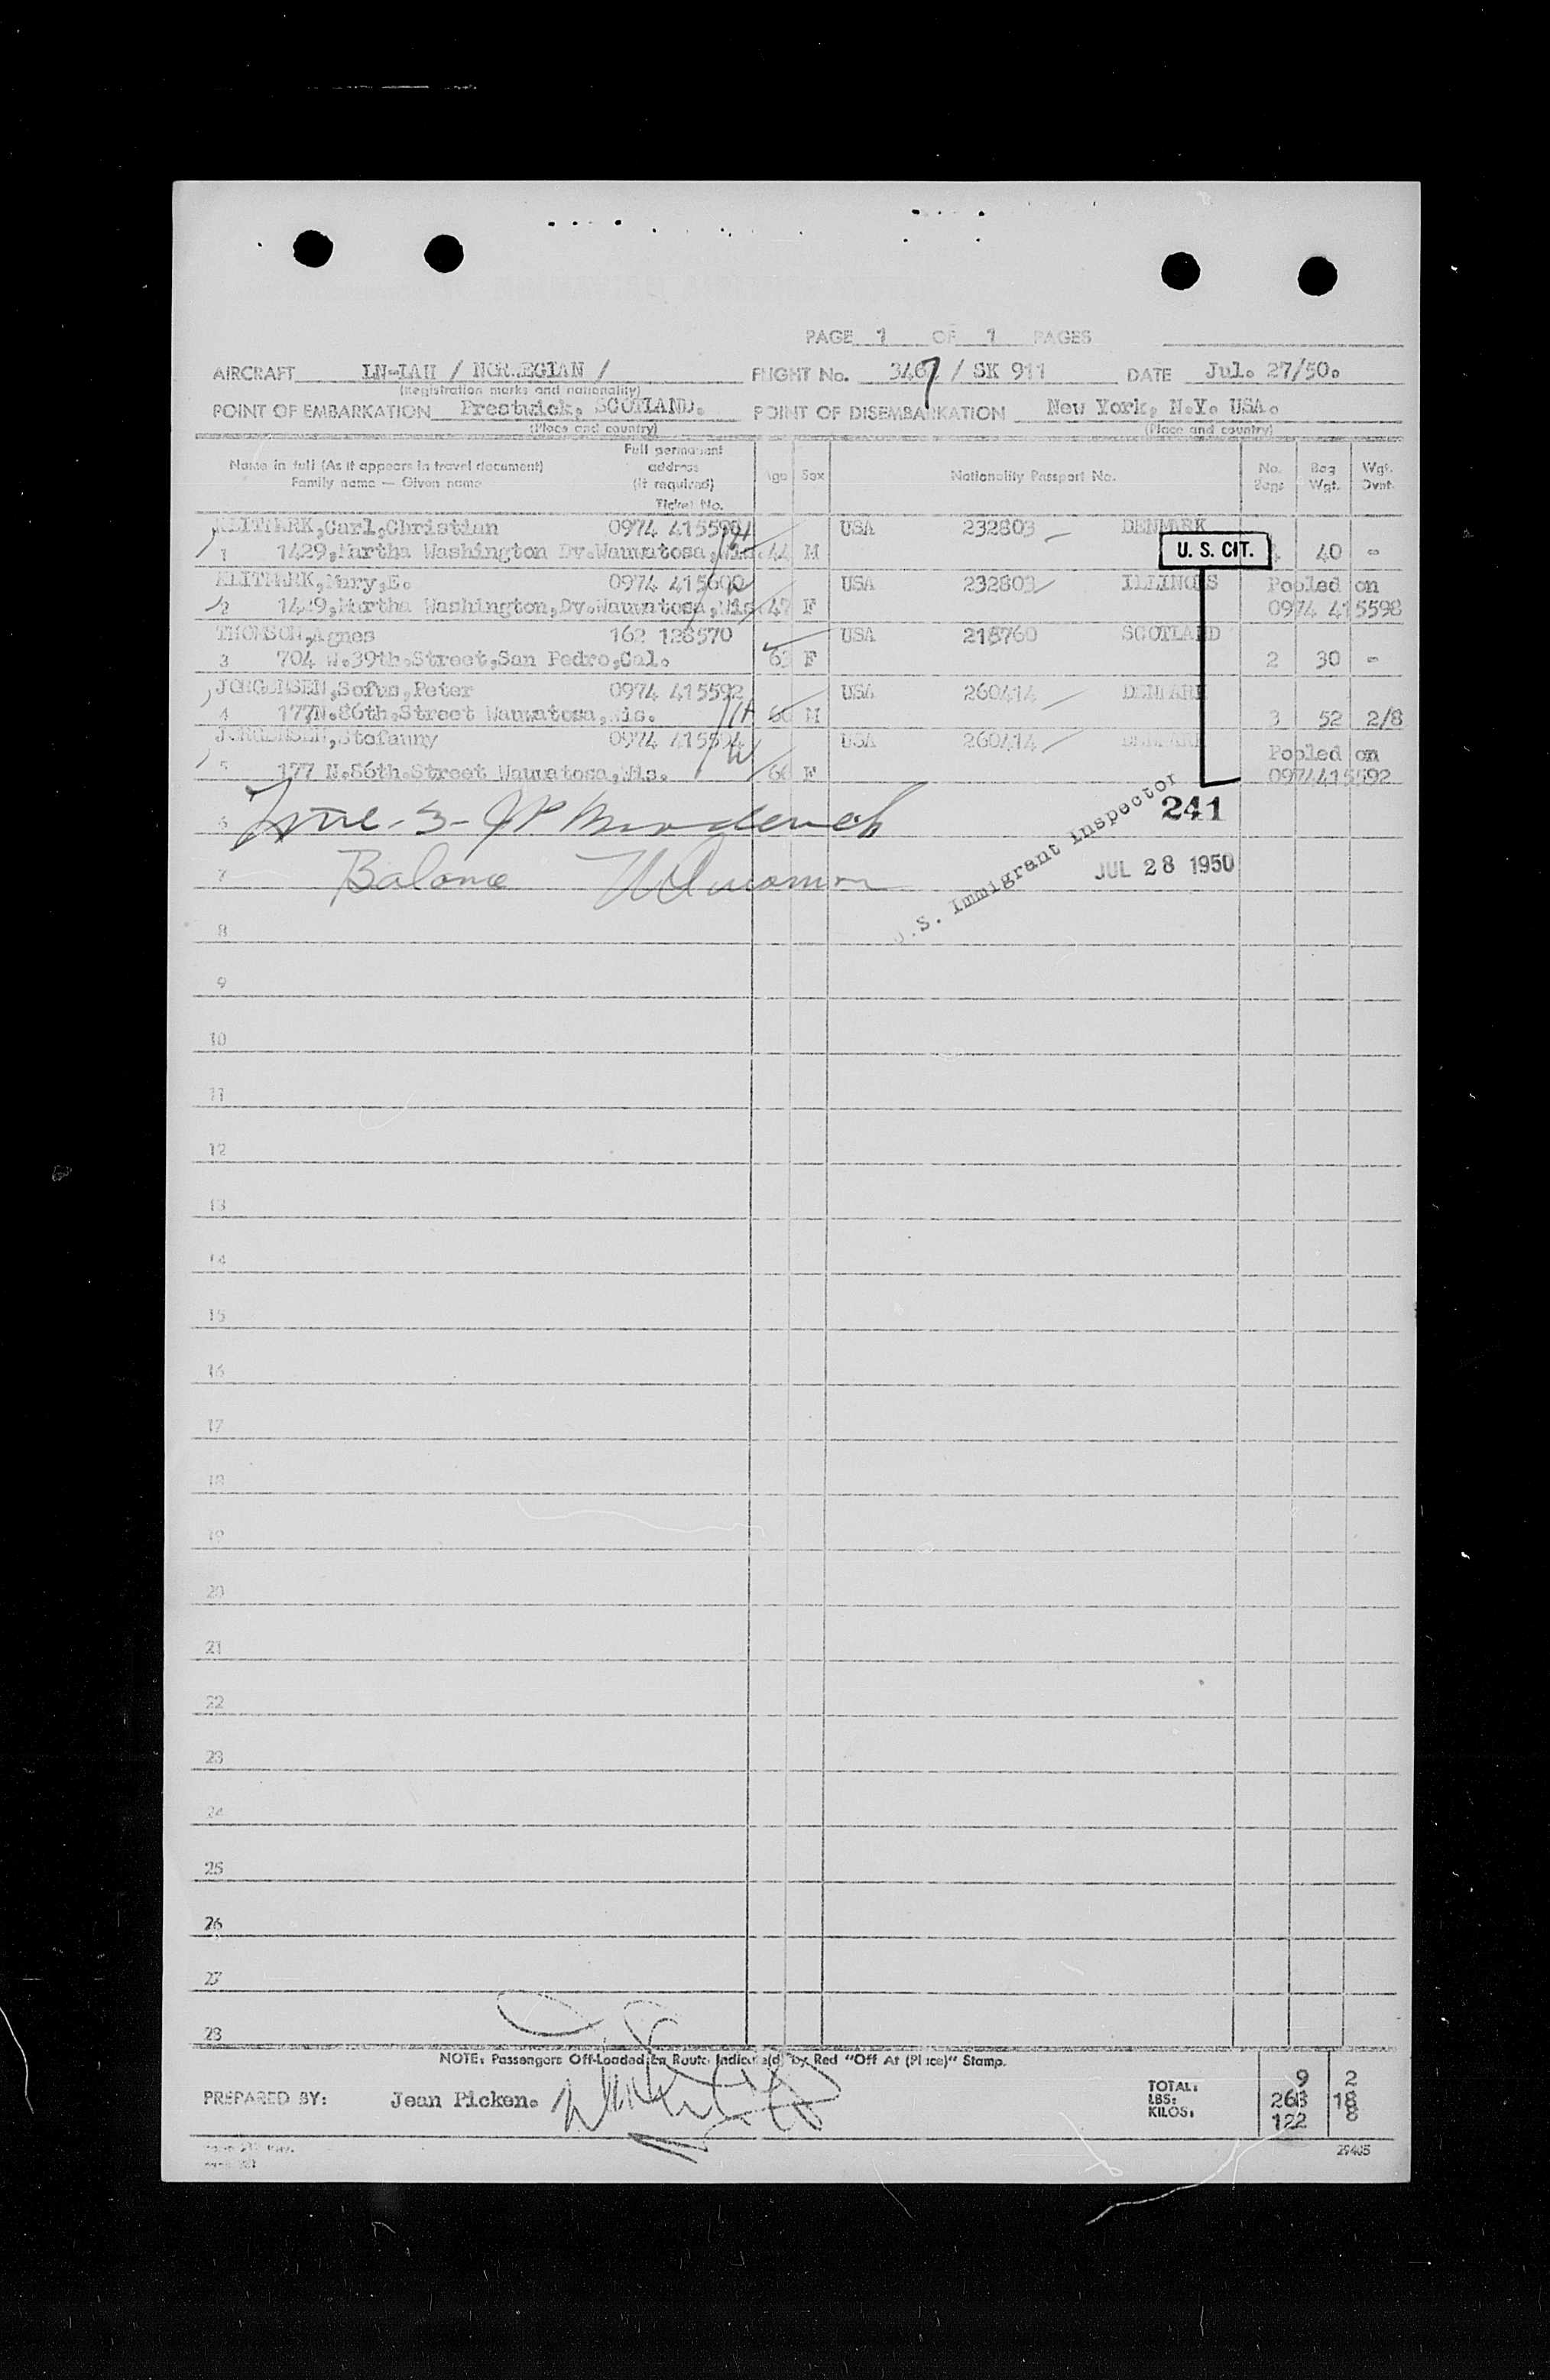 PAGE 1 OF 1 PAGES
AIRCRAFT LN-IAH / NORWEGIAN / FLIGHT No. 3467 / SK 911 DATE Jul. 27/50.
(Registration marks and nationality)
POINT OF EMBARKATION Prestwick, SCOTLAND. POINT OF DISEMBARKATION New York, N.Y. USA.
(Place and country) (Place and country)
Name in full (As it appears in travel document)
Family name — Given name
Full permanent
address
(if required)
Ticket No.
Age Sex Nationality Passport No. No. Bags Bag Wgt. Wgt. Ovnt.
KLITMERK,Carl,Christian 0974 415598 USA 232803 DENMARK
1 1429,Martha Washington Dv.Wauwatosa,Wis. 44 M 4 40 -
U. S. CIT.
KLITMERK,Mary,E. 0974 415600 USA 232803 ILLINOIS Pooled on
2 1429,Martha Washington,Dv.Wauwatosa,Wis. 47 F 0974 415598
THOMSON,Agnes 162 128570 USA 218760 SCOTLAND
3 704 W.39th.Street,San Pedro,Cal. 63 F 2 30 -
JORGENSEN,Sofus,Peter 0974 415592 USA 260414 DENMARK
4 177N.86th.Street Wauwatosa,Wis. 66 M 3 52 2/8
JORGENSEN,Stefanny 0974 415594 USA 260414 DENMARK Pooled on
5 177 N.86th.Street Wauwatosa,Wis. 66 F 0974415592
6 Line - 3 - JP
241
7 Balance
JUL 28 1950
U.S. Immigrant Inspector
8
9
10
11
12
13
14
15
16
17
18
19
20
21
22
23
24
25
26
27
28
NOTE: Passengers Off-Loaded En Route Indicate(d) by Red "Off At (Place)" Stamp.
PREPARED BY: Jean Picken.
TOTAL: 9 2
LBS: 268 18
KILOS: 122 8
29405